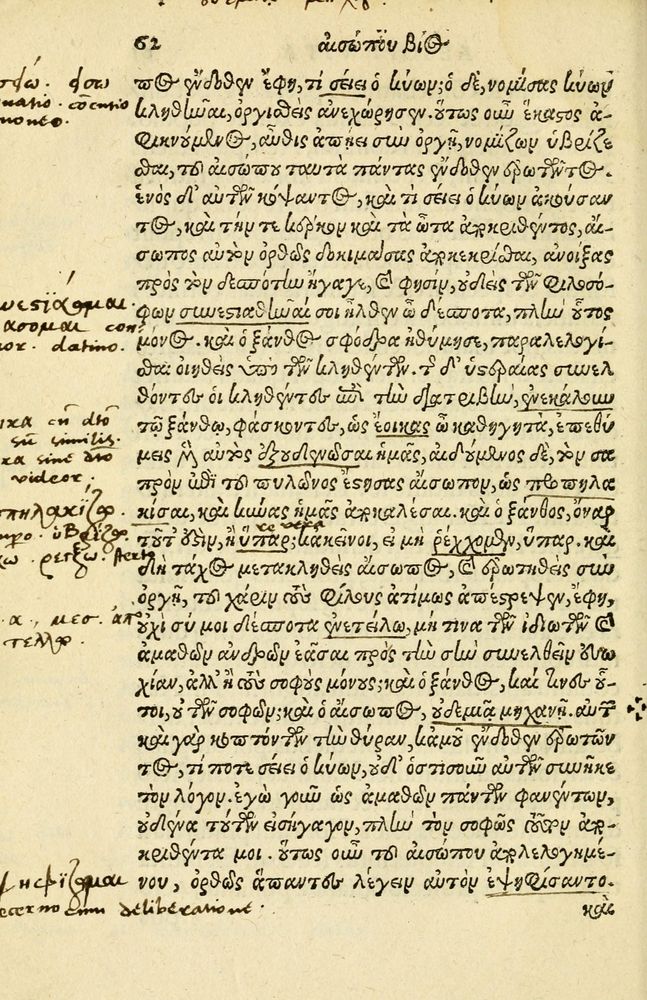 62 αἰσώπου βίος
πος ἔνδοθεν ἔφη, τί σείει ὁ κύων; ὁ δὲ, νομίσας κύων
κληθῆναι, ὀργισθεὶς ἀνεχώρησεν. οὕτως οὖν ἕκαστος ἀ-
φικνούμενος, αὖθις ἀπῄει σὺν ὀργῇ, νομίζων ὑβρίζε
σθαι, τοῦ αἰσώπου ταυτὰ πάντας ἔνδοθεν ἐρωτῶντος.
ἑνὸς δ' αὐτῶν κόψαντος, καὶ τί σείει ὁ κύων ἀκούσαν
τος, καὶ τήν τε κέρκον καὶ τὰ ὦτα ἀποκριθέντος, αἴ-
σωπος αὐτὸν ὀρθῶς δοκιμάσας ἀποκεκρίσθαι, ἀνοίξας
πρὸς τὸν δεσπότην ἤγαγε, καὶ φησὶν, οὐδεὶς τῶν φιλοσό-
φων συνεστιαθῆναί σοι ἦλθεν ὦ δέσποτα, πλὴν οὗτος
μόνος. καὶ ὁ ξάνθος σφόδρα ἠθύμησε, παραλελογί-
σθαι οἰηθεὶς ὑπὸ τῶν κληθέντων. τῇ δ' ὑστεραίᾳ συνελ
θόντες οἱ κληθέντες ἐπὶ τὴν διατριβὴν, ἐνεκάλουν
τῷ ξάνθῳ, φάσκοντες, ὡς ἔοικας ὦ καθηγητὰ, ἐπεθύ
μεις μὲν αὐτὸς ἐξουδενῶσαι ἡμᾶς, αἰδούμενος δὲ, τὸν σα
πρὸν ἐπὶ τοῦ πυλῶνος ἔστησας αἴσωπον, ὡς προπηλα
κίσαι, καὶ κύνας ἡμᾶς ἀποκαλέσαι. καὶ ὁ ξάνθος, ὄναρ
τοῦτ' ἐστὶν, ἢ ὕπαρ; κἀκεῖνοι, εἰ μὴ ῥέγχομεν, ὕπαρ. καὶ
δὴ τάχος μετακληθεὶς αἴσωπος, καὶ ἐρωτηθεὶς σὺν
ὀργῇ, τοῦ χάριν τοὺς φίλους ἀτίμως ἀπέστρεψεν, ἔφη,
οὐχὶ σύ μοι δέσποτα ἐνετείλω, μή τινα τῶν ἰδιωτῶν καὶ
ἀμαθῶν ἀνδρῶν ἐᾶσαι πρὸς τὴν σὴν συνελθεῖν εὐω
χίαν, ἀλλ' ἢ τοὺς σοφοὺς μόνους; καὶ ὁ ξάνθος, καὶ τίνες οὗ-
τοι, οὐ τῶν σοφῶν; καὶ ὁ αἴσωπος, οὐδεμιᾷ μηχανῇ. αὐτῶν
καὶ γὰρ κοπτόντων τὴν θύραν, κἀμοῦ ἔνδοθεν ἐρωτῶν
τος, τί ποτε σείει ὁ κύων, οὐδ' ὁστισοῦν αὐτῶν συνῆκε
τὸν λόγον. ἐγὼ γοῦν ὡς ἀμαθῶν πάντων φανέντων,
οὐδένα τούτων εἰσήγαγον, πλὴν τὸν σοφῶς τοῦτον ἀπο-
κριθέντα μοι. οὕτως οὖν τοῦ αἰσώπου ἀπολελογημέ-
νου, ὀρθῶς ἅπαντες λέγειν αὐτὸν ἐψηφίσαντο.
καὶ
datino.
sine
videor.
deliberatione.